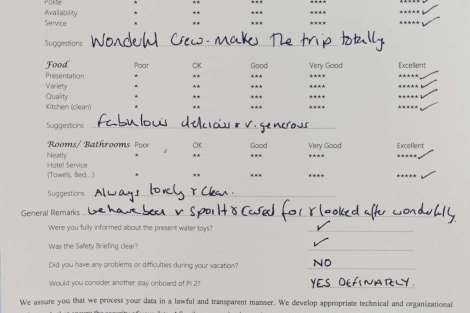 Polite * ** *** **** ***** ✓
Availability * ** *** **** ***** ✓
Service * ** *** **** ***** ✓
Suggestions Wonderful Crew - makes the trip totally
Food Poor OK Good Very Good Excellent
Presentation * ** *** **** ***** ✓
Variety * ** *** **** ***** ✓
Quality * ** *** **** ***** ✓
Kitchen (clean) * ** *** **** ***** ✓
Suggestions Fabulous delicious + v. generous
Rooms/ Bathrooms Poor OK Good Very Good Excellent
Neatly * ** *** **** ***** ✓
Hotel Service
(Towels, Bed...) * ** *** **** ***** ✓
Suggestions Always lovely & clean.
General Remarks we have been v spoilt & cared for & looked after wonderfully
Were you fully informed about the present water toys? ✓
Was the Safety Briefing clear? ✓
Did you have any problems or difficulties during your vacation? NO
Would you consider another stay onboard of Pi 2? YES DEFINATELY.
We assure you that we process your data in a lawful and transparent manner. We develop appropriate technical and organizational